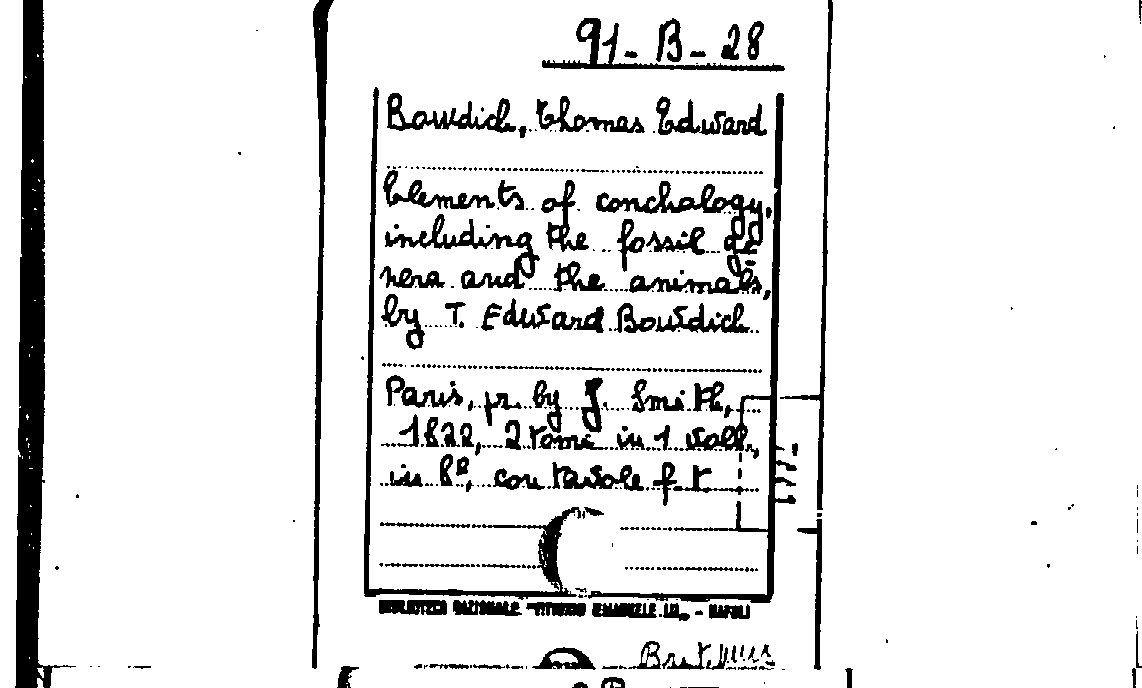 91-B-28
Bowdich, Thomas Edward
Elements of conchology,
including the fossil ge=
nera and the animals,
by T. Edward Bowdich
Paris, pr. by J. Smith,
1822, 2 tomi in 1 vol.,
in 8º, con tavole f.t.
BIBLIOTECA NAZIONALE "VITTORIO EMANUELE III" - NAPOLI